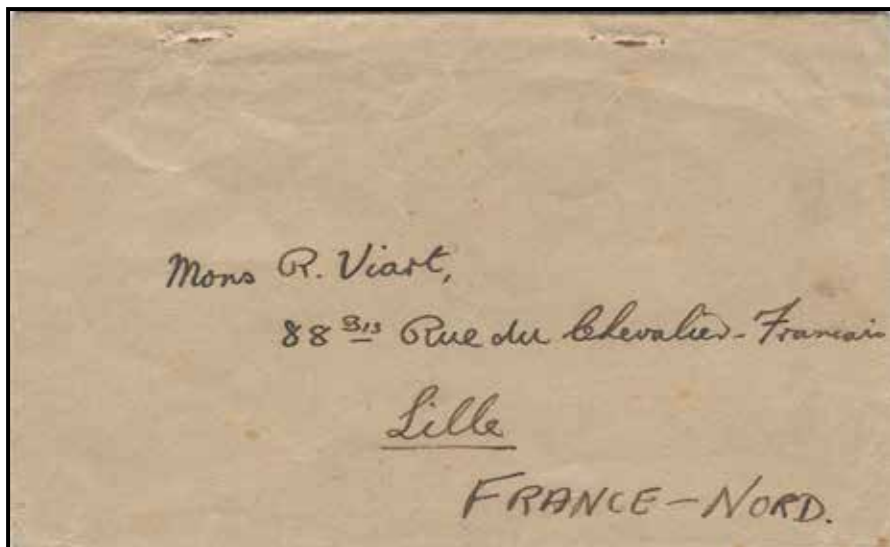 Mons R. Viart,
88 Bis Rue du Chevalier-Francais
Lille
FRANCE-NORD.